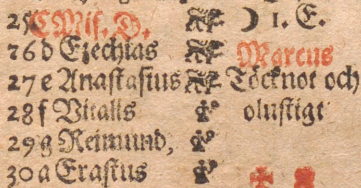 25 C Mis. D. ☽ 1. E.
26 d Ezechias Marcus
27 e Anastasius Töcknot och
28 f Vitalis olustigt
29 g Reimund,
30 a Erastus